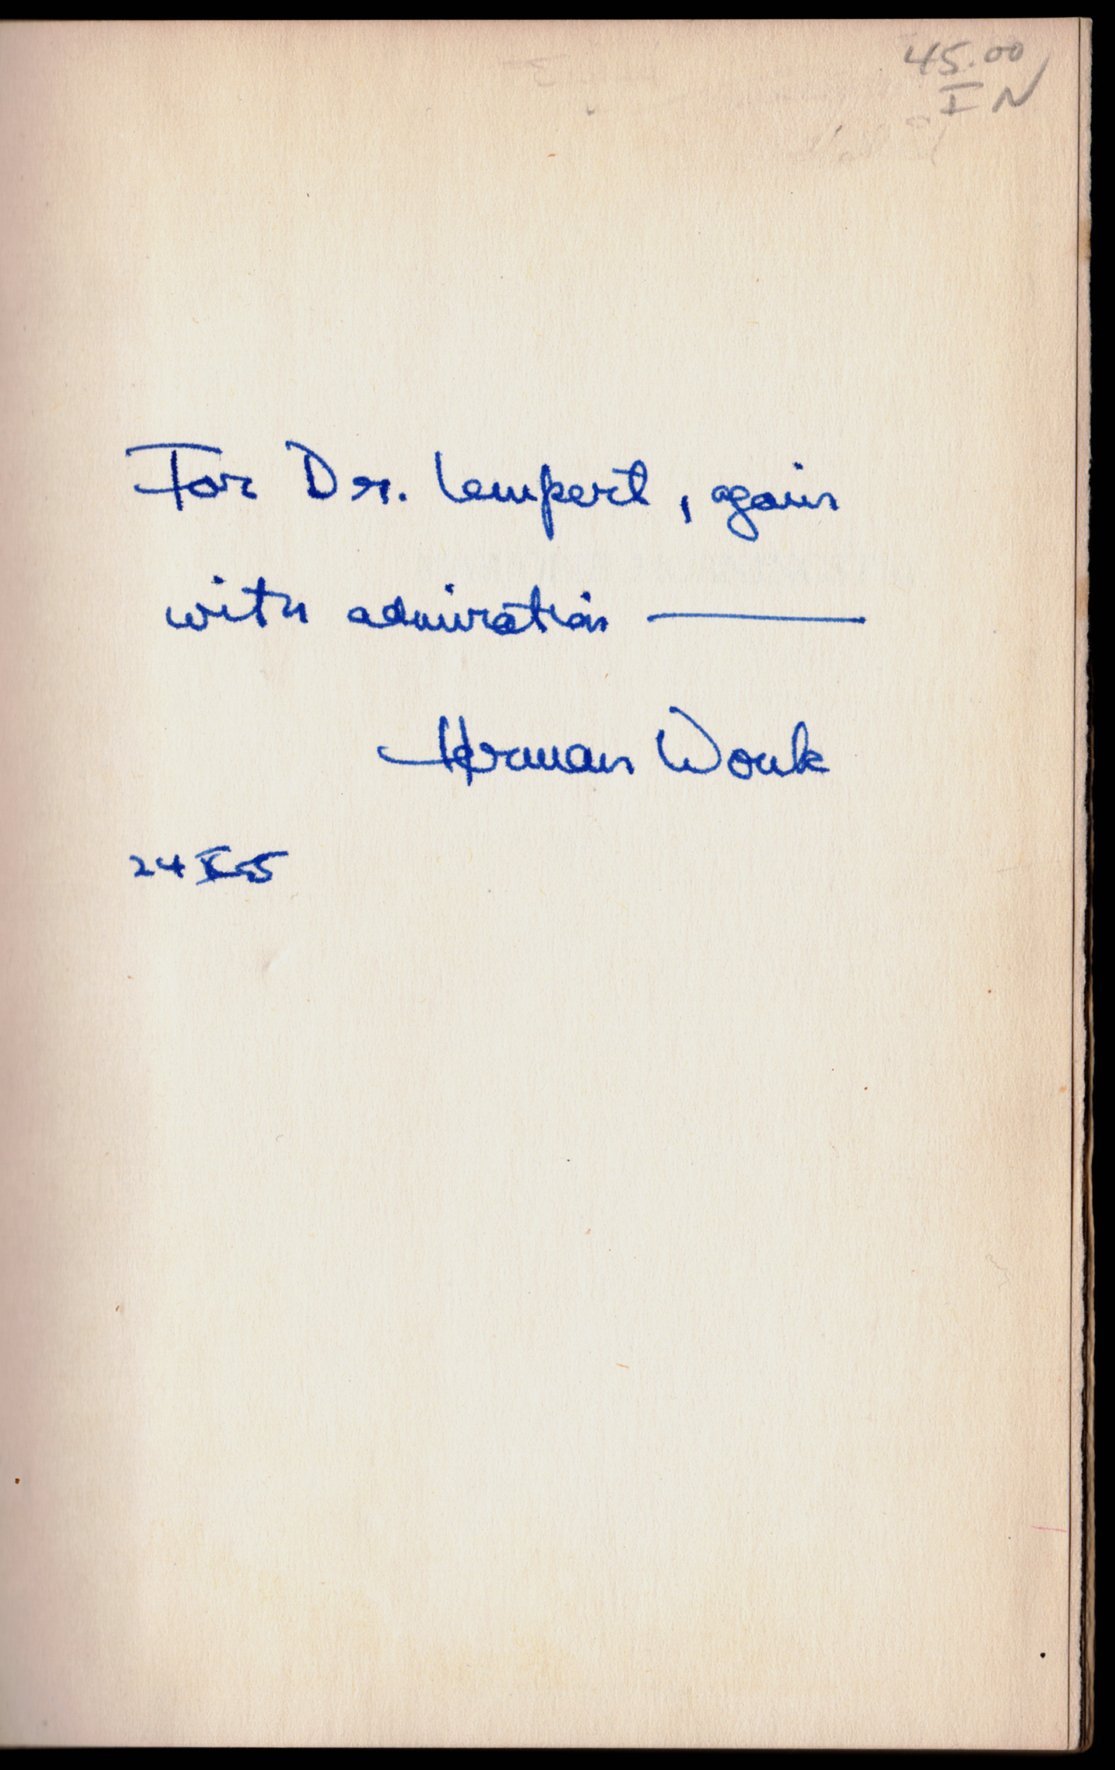 45.00
IN
For Dr. Lempert, again
with admiration —
Herman Wouk
24 X 55